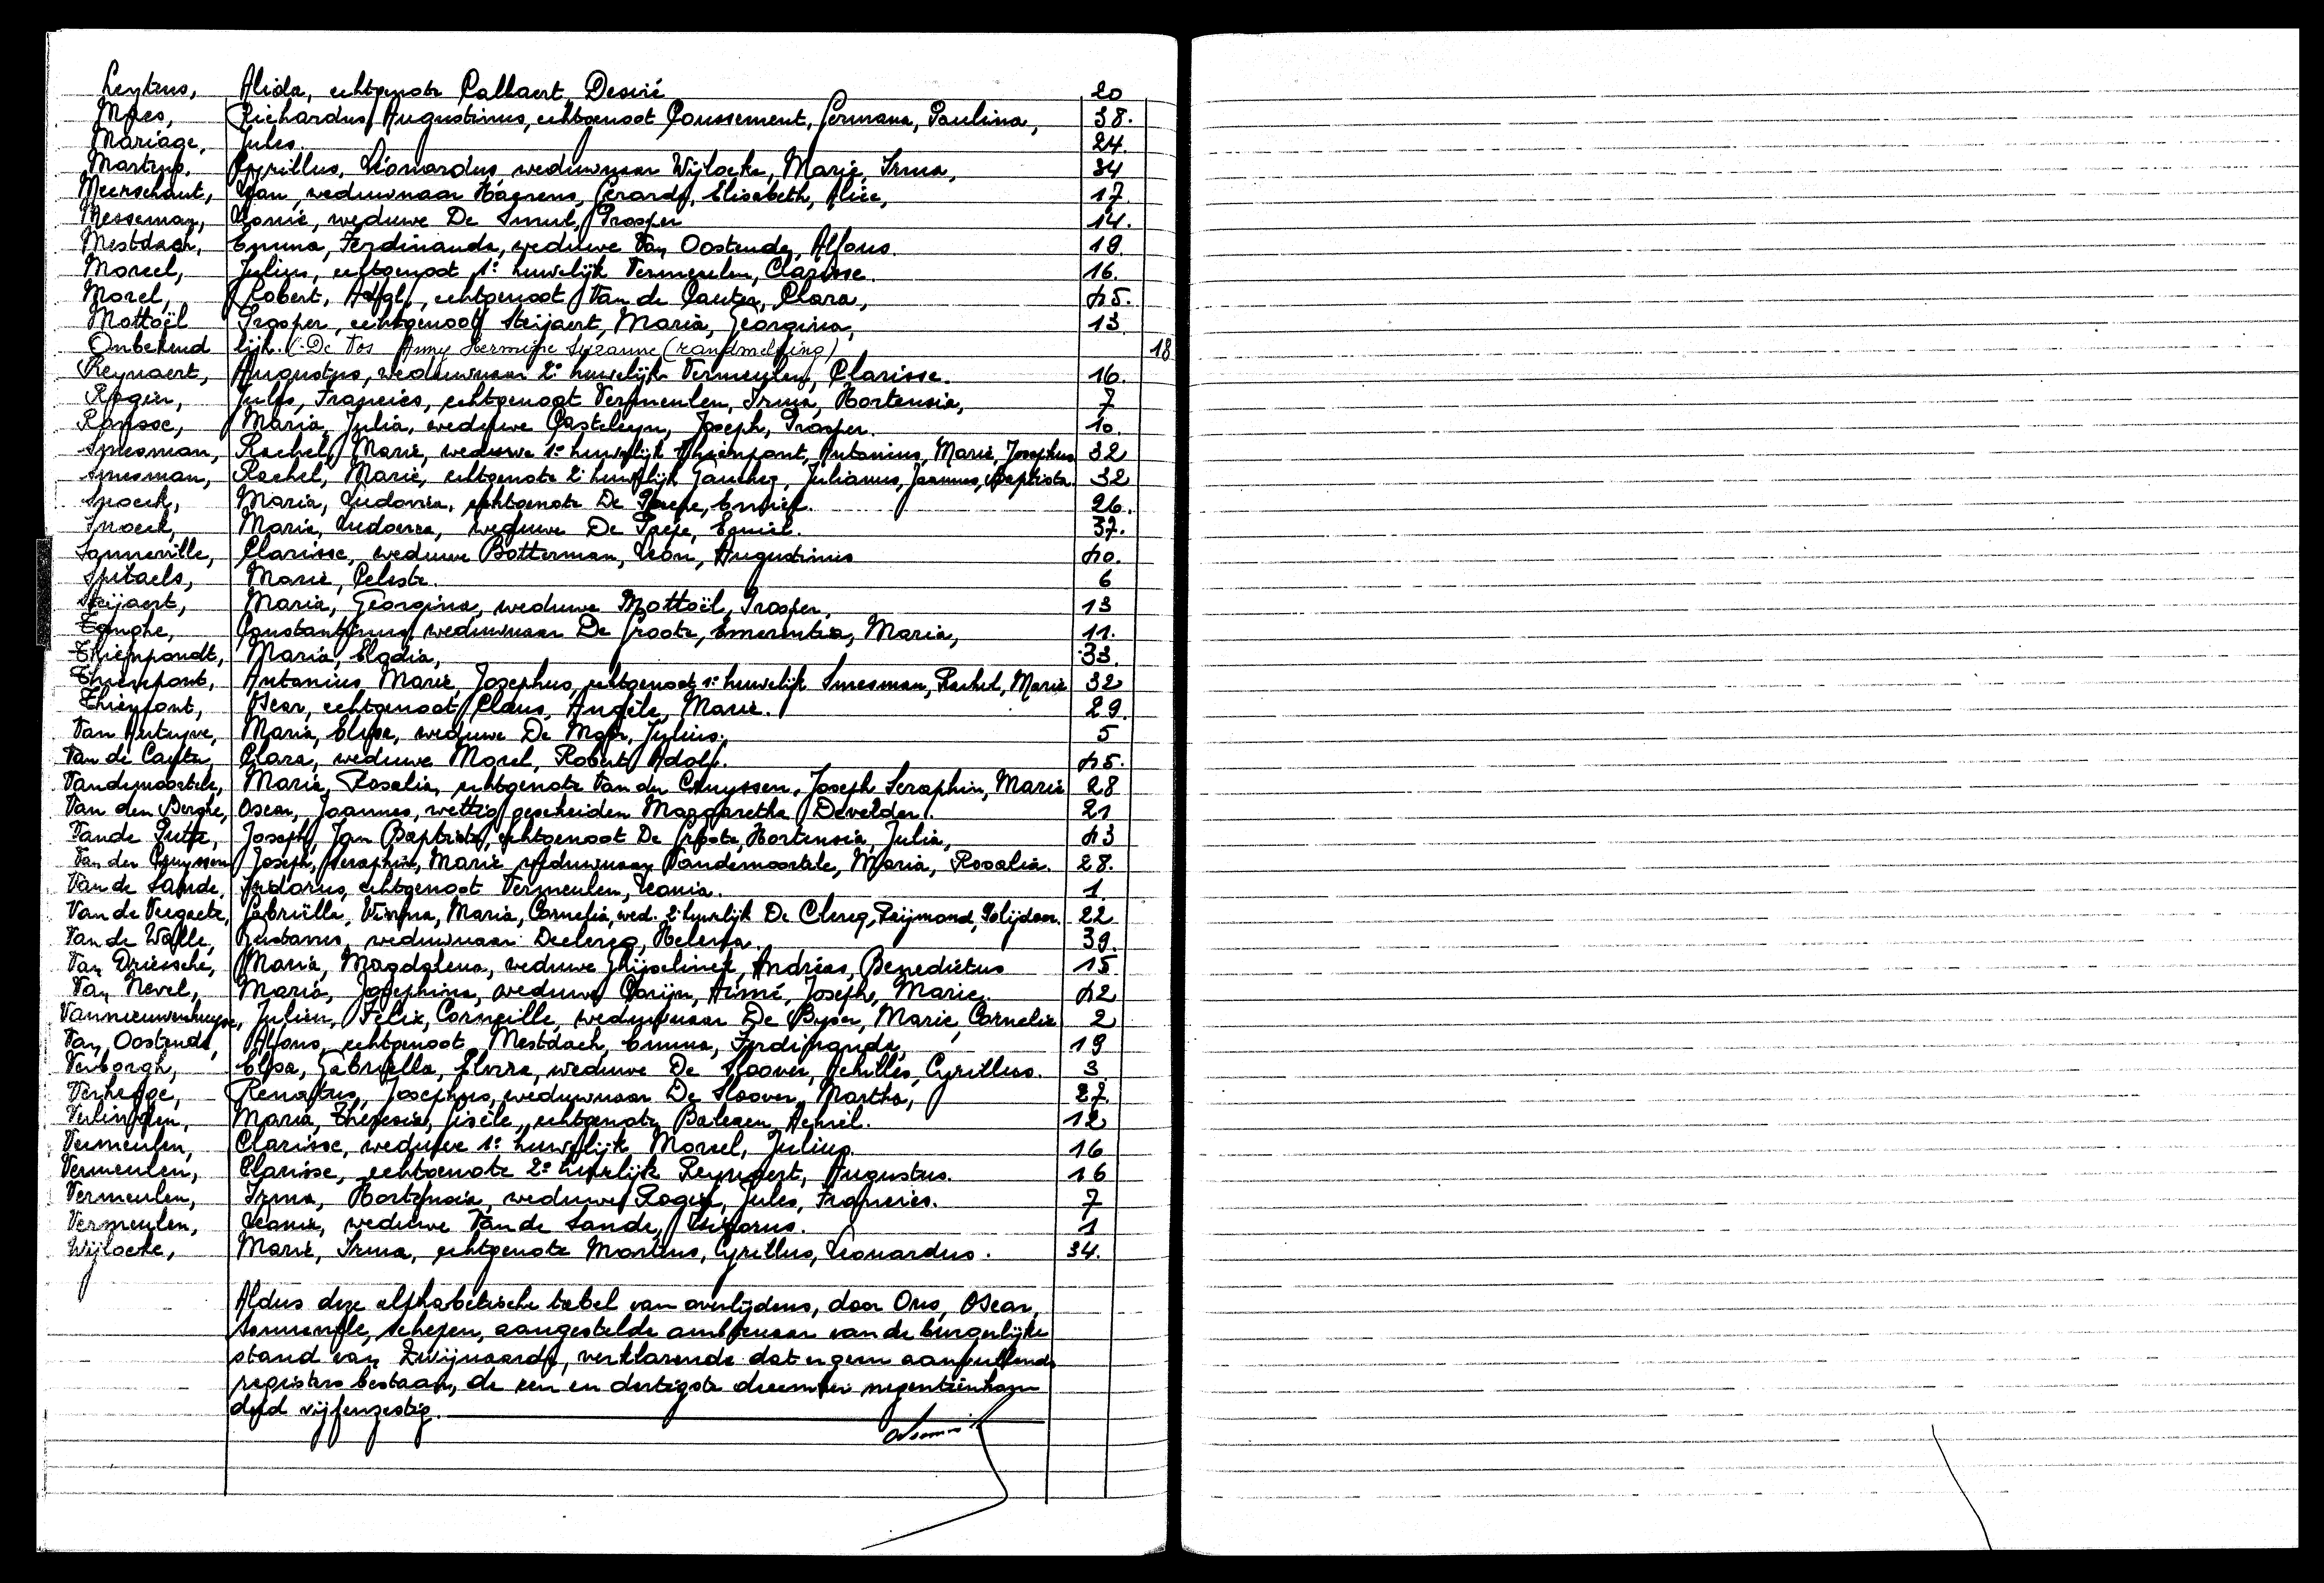 Leytens, Alida, echtgenote Callaert Desiré 20
Maes, Richardus, Augustinus, echtgenoot Coussement, Germana, Paulina, 38.
Mariage, Jules. 24.
Martens, Cyrillus, Léonardus, weduwnaar Wijlocke, Marie, Irma, 34
Meerschaut, Jan, weduwnaar Haerens, Gerarda, Elisabeth, Alice, 17.
Messeman, Leonie, weduwe De Smul, Prosper 14.
Mestdach, Emma, Ferdinanda, weduwe Van Oostende, Alfons. 19.
Moreel, Julius, echtgenoot 1e huwelijk Vermeulen, Clarisse. 16.
Morel, Robert, Adolf, echtgenoot Van de Cauter, Clara, 45.
Mottoël Prosper, echtgenoot Steijaert, Maria, Georgina, 13
Onbekend lijk. (De Vos Anny Hermine Suzanne (randmelding) 18
Reynaert, Augustus, weduwnaar 2e huwelijk Vermeulen, Clarisse. 16.
Rogier, Jules, Francies, echtgenoot Vermeulen, Irma, Hortensia, 7
Ronsse, Maria, Julia, weduwe Casteleyn, Joseph, Prosper. 10.
Smesman, Rachel, Marie, weduwe 1e huwelijk Thienpont, Antonius, Marie, Josephus 32
Smesman, Rachel, Marie, echtgenote 2e huwelijk Gauchez, Julianus, Joannes, Baptista. 32
Snoeck, Maria, Ludovica, echtgenote De Paepe, Emiel. 26.
Snoeck, Maria, Ludovica, weduwe De Paepe, Emiel. 37.
Sonneville, Clarisse, weduwe Botterman, Leon, Augustinus 40.
Spitaels, Marie, Celeste. 6
Steijaert, Maria, Georgina, weduwe Mottoël, Prosper, 13
Tanghe, Constantinus, weduwnaar De Groote, Emerentia, Maria, 11.
Thienpondt, Maria, Elodia, 33.
Thienpont, Antonius Marie, Josephus, echtgenoot 1e huwelijk Smesman, Rachel, Marie 32
Thienpont, Oscar, echtgenoot Claus, Angèle, Marie. 29.
Van Autryve, Maria, Elisa, weduwe De Moor, Julius. 5
Van de Cauter, Clara, weduwe Morel, Robert Adolf. 45.
Vandemoortele, Maria, Rosalia, echtgenote Van der Cruyssen, Joseph Seraphin, Marie 28
Van den Berghe, Oscar, Joannes, wettig gescheiden Margaretha Develder. 21
Vande Putte, Joseph, Jan Baptista, echtgenoot De Groote, Hortensia, Julia, 43
Van der Cruyssen Joseph, Seraphin, Marie weduwnaar Vandemoortele, Maria, Rosalia. 28.
Van de Sande, Isidorus, echtgenoot Vermeulen, Leonia. 1.
Van de Veegaete, Gabriëlla, Virgina, Maria, Cornelia, wed. 2e huwelijk De Clercq, Reijmond, Polijdoor. 22
Van de Walle, Gustavus, weduwnaar Declercq, Helena. 39.
Van Driessche, Maria, Magdalena, weduwe Ghijselinck, Andréas, Benedictus 15
Van Nevel, Maria, Josephina, weduwe Carijn, Aimé, Joseph, Marie. 42
Vannieuwenhuyse, Julien, Felix, Corneille, weduwnaar De Byser, Marie, Cornelie 2
Van Oostende, Alfons, echtgenoot Mestdach, Emma, Ferdinanda, 19
Verborgh, Elisa, Gabriella, Elvira, weduwe De Sloover, Achilles, Cyrillus. 3
Verhegge, Renatus, Josephus, weduwnaar De Sloover, Martha, 27.
Verlinden, Maria, Theresia, Gisèle, echtgenote Balegen, Achiel. 12
Vermeulen, Clarisse, weduwe 1e huwelijk Moreel, Julius. 16
Vermeulen, Clarisse, echtgenote 2e huwelijk Reynaert, Augustus. 16
Vermeulen, Irma, Hortensia, weduwe Rogier, Jules, Francies. 7
Vermeulen, Leonie, weduwe Van de Sande, Isidorus. 1
Wijlocke, Marie, Irma, echtgenote Martens, Cyrillus, Leonardus. 34.
Aldus deze alfabetische tabel van overlijdens, door Ons, Oscar,
Sonneville, schepen, aangestelde ambtenaar van de burgerlijke
stand van Zwijnaarde, verklarende dat er geen aanvullende
registers bestaan, de een en dertigste december negentienhon
derd vijfenzestig.